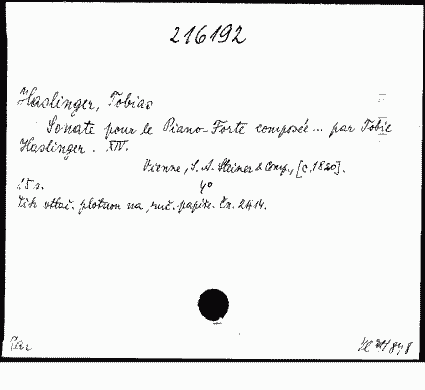 216192
Haslinger, Tobias
Sonate pour le Piano-Forte composée ... par Tobie
Haslinger. XIV.
Vienne, S. A. Steiner & Comp., [c. 1820].
15 s. 4°
Tisk vtlač. plotnou na ruč. papíře. Čn. 2414.